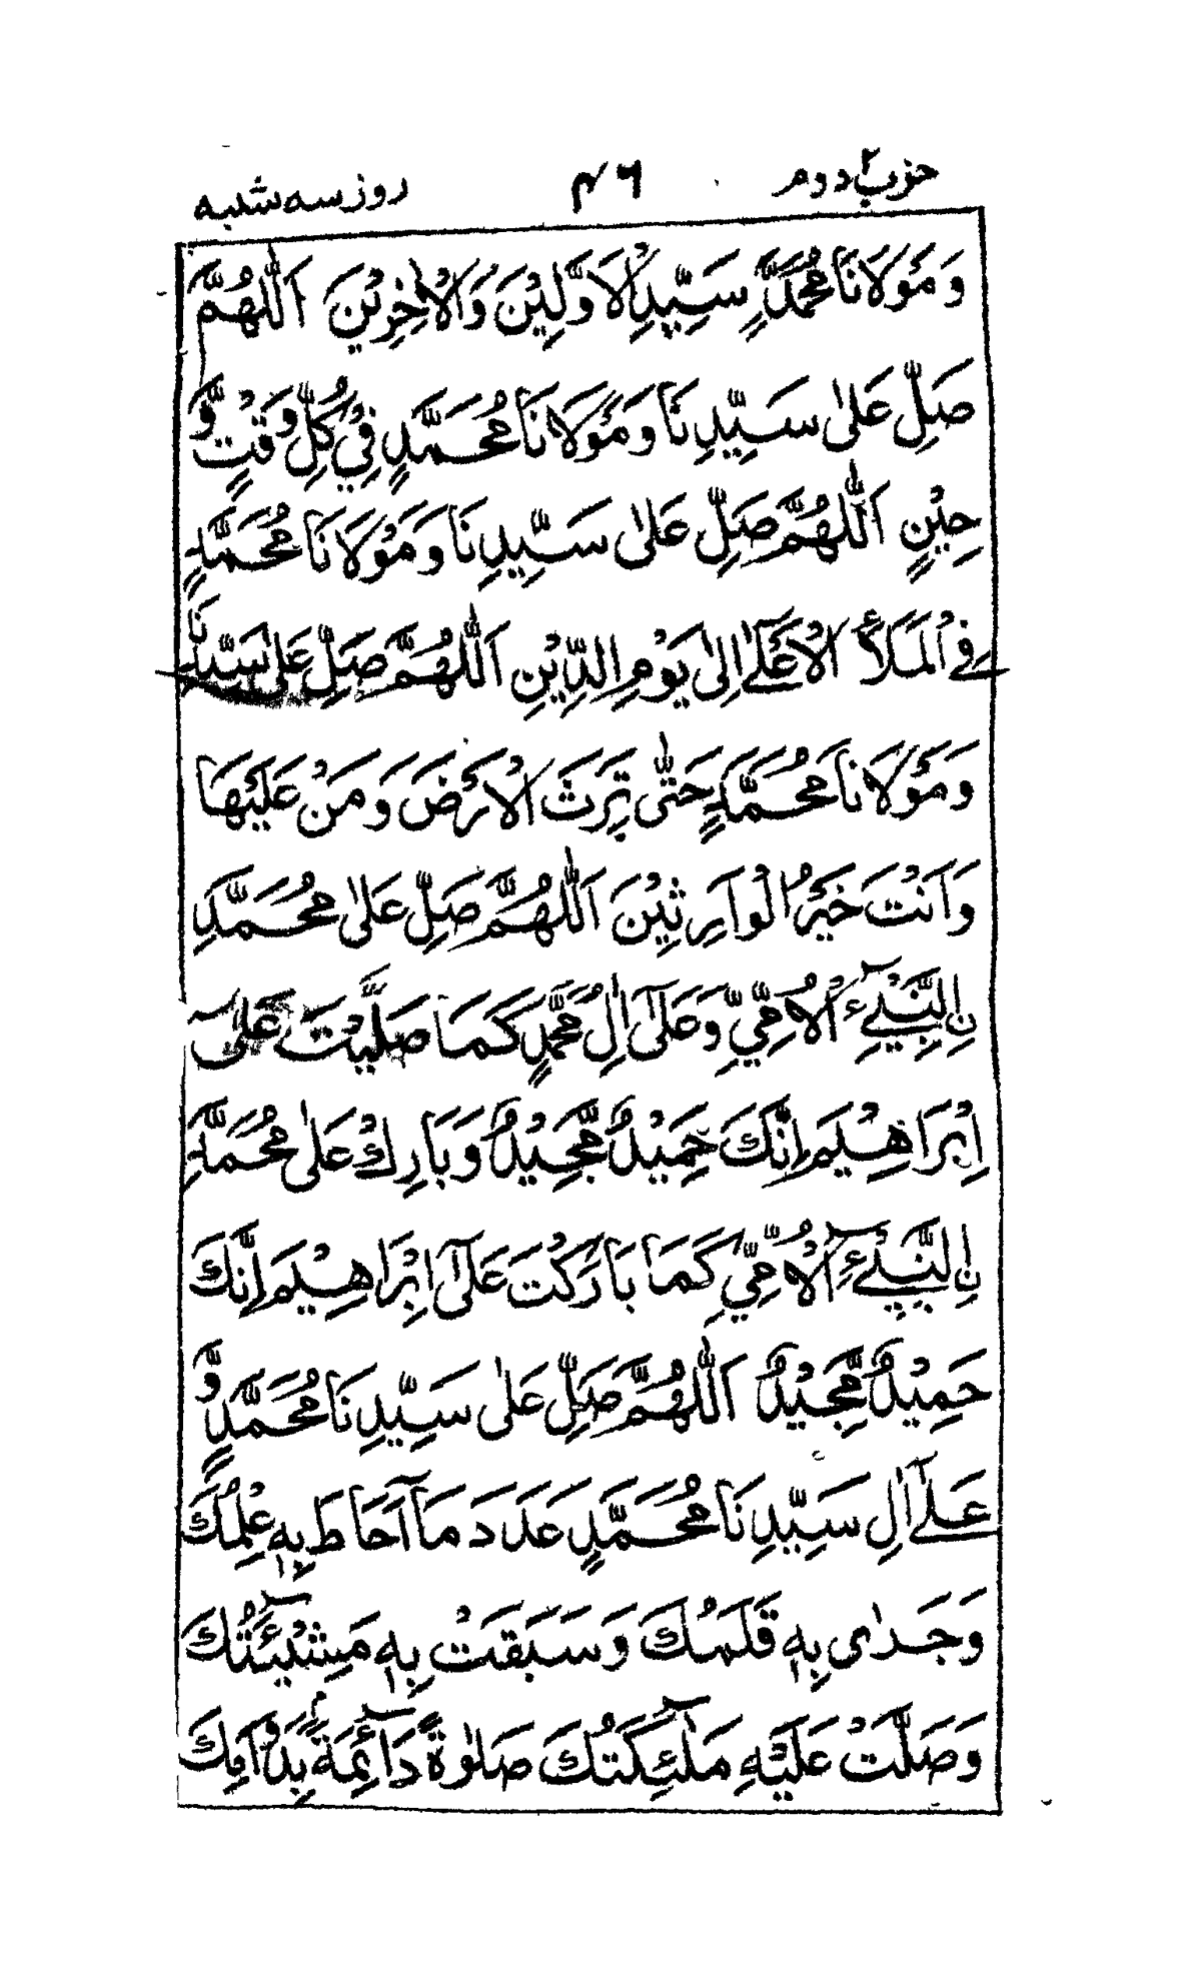 حزب ٢ دوم ٤٦ روز سه شنبه
وَمَوْلَانَا مُحَمَّدٍ سَيِّدِ الْاَوَّلِيْنَ وَالْاٰخِرِيْنَ اَللّٰهُمَّ
صَلِّ عَلٰى سَيِّدِنَا وَمَوْلَانَا مُحَمَّدٍ فِيْ كُلِّ وَقْتٍ وَّ
حِيْنٍ اَللّٰهُمَّ صَلِّ عَلٰى سَيِّدِنَا وَمَوْلَانَا مُحَمَّدٍ
فِي الْمَلَأِ الْاَعْلٰٓى اِلٰى يَوْمِ الدِّيْنِ اَللّٰهُمَّ صَلِّ عَلٰى سَيِّدِنَا
وَمَوْلَانَا مُحَمَّدٍ حَتّٰى تَرِثَ الْاَرْضَ وَمَنْ عَلَيْهَا
وَاَنْتَ خَيْرُ الْوَارِثِيْنَ اَللّٰهُمَّ صَلِّ عَلٰى مُحَمَّدِ
نِ النَّبِيِّ الْاُمِّيِّ وَعَلٰٓى اٰلِ مُحَمَّدٍ كَمَا صَلَّيْتَ عَلٰٓى
اِبْرَاهِيْمَ اِنَّكَ حَمِيْدٌ مَّجِيْدٌ وَبَارِكْ عَلٰى مُحَمَّدِ
نِ النَّبِيِّ الْاُمِّيِّ كَمَا بَارَكْتَ عَلٰٓى اِبْرَاهِيْمَ اِنَّكَ
حَمِيْدٌ مَّجِيْدٌ اَللّٰهُمَّ صَلِّ عَلٰى سَيِّدِنَا مُحَمَّدٍ وَّ
عَلٰٓى اٰلِ سَيِّدِنَا مُحَمَّدٍ عَدَدَ مَآ اَحَاطَ بِهٖ عِلْمُكَ
وَجَرٰى بِهٖ قَلَمُكَ وَسَبَقَتْ بِهٖ مَشِيْئَتُكَ
وَصَلَّتْ عَلَيْهِ مَلٰٓئِكَتُكَ صَلٰوةً دَآئِمَةً بِدَوَامِكَ